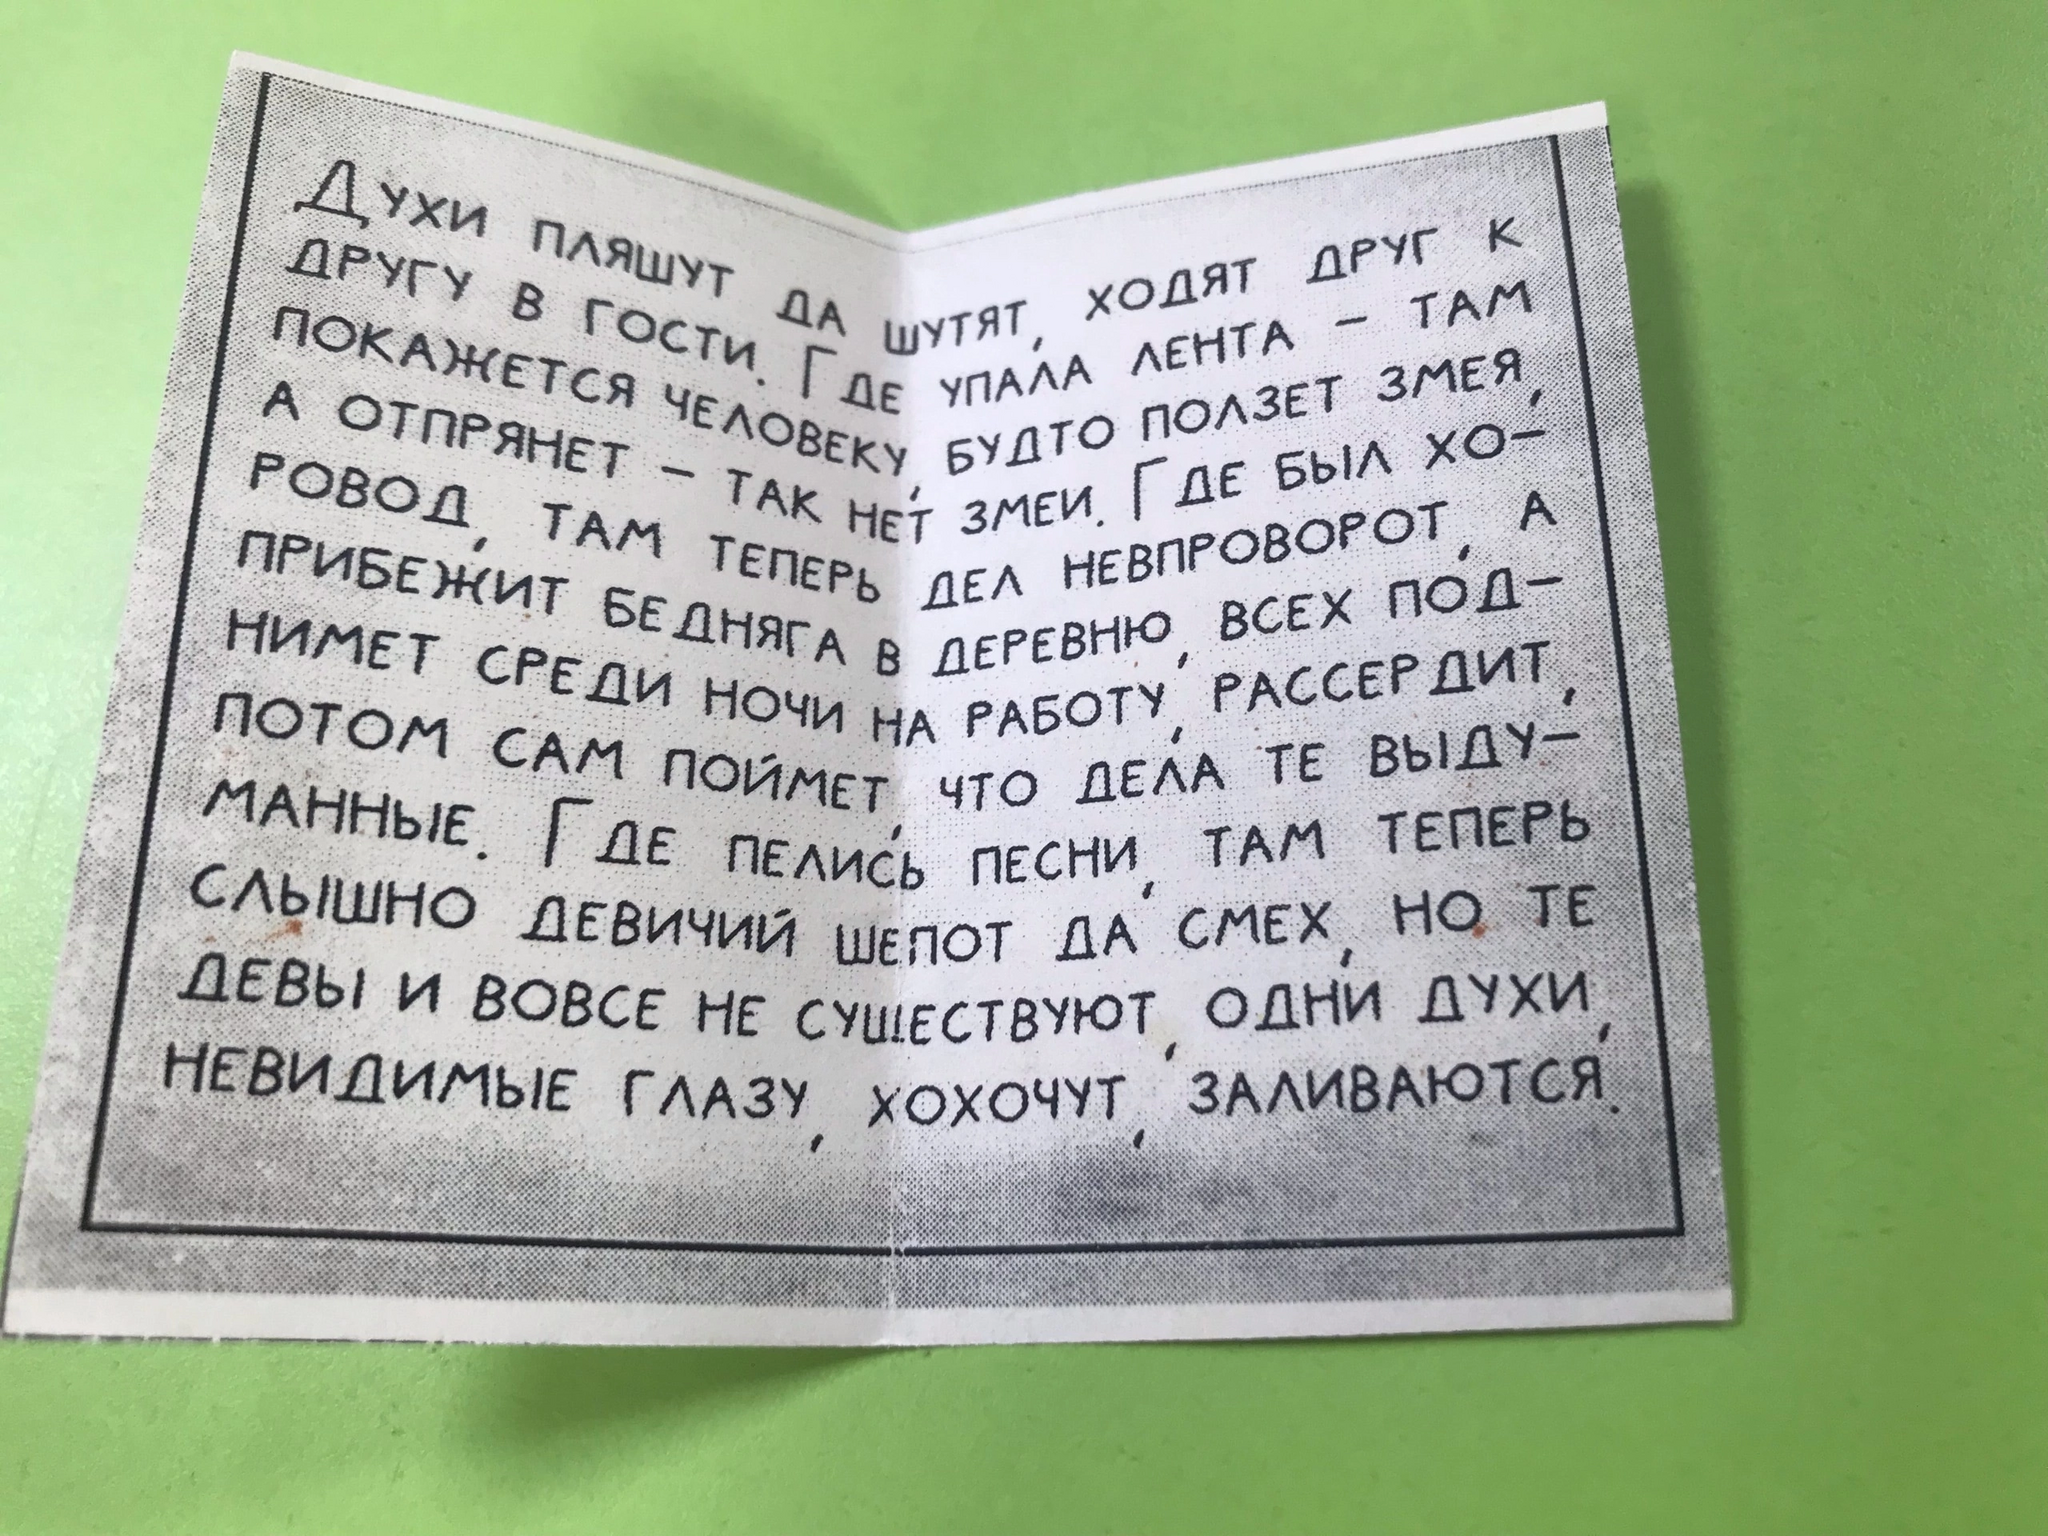 Духи пляшут да шутят, ходят друг к
другу в гости. Где упала лента – там
покажется человеку, будто ползет змея,
а отпрянет – так нет змеи. Где был хо-
ровод, там теперь дел невпроворот, а
прибежит бедняга в деревню, всех под-
нимет среди ночи на работу, рассердит,
потом сам поймет, что дела те выду-
манные. Где пелись песни, там теперь
слышно девичий шепот да смех, но те
девы и вовсе не существуют, одни духи,
невидимые глазу, хохочут, заливаются.